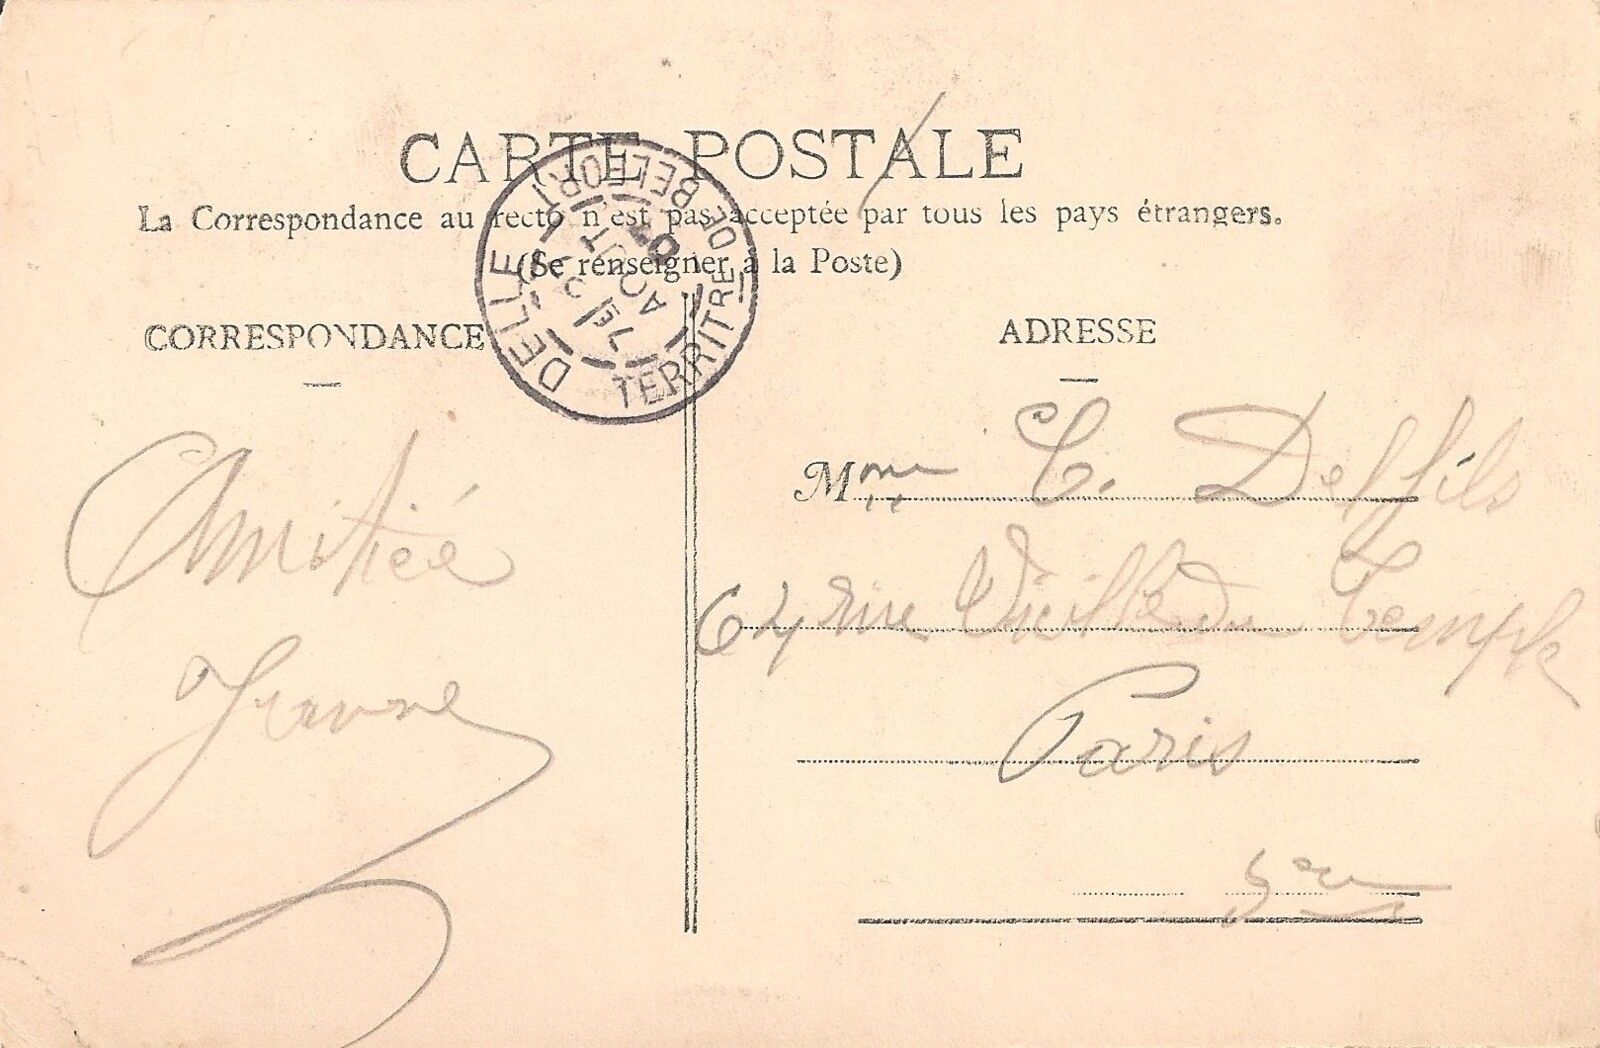 CARTE POSTALE
La Correspondance au recto n'est pas acceptée par tous les pays étrangers.
(Se renseigner à la Poste)
DELLE
TERRITRE DE BELFORT
7E
AOUT
07
CORRESPONDANCE
Amitiée
Jeanne
ADRESSE
Mme C. Delfils
64 rue Vieille du Temple
Paris
3em